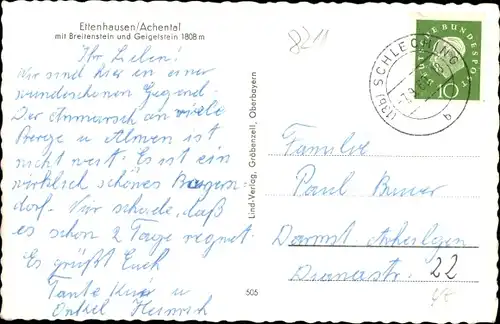 Ettenhausen/Achental
mit Breitenstein und Geigelstein 1808 m
821
Ihr Lieben!
Wir sind hier in einer
wunderschönen Gegend.
Der Anmarsch an viele
Berge u Almen ist
nicht weit. Es ist ein
wirklich schönes Bauern-
dorf. Nur schade, daß
es schon 2 Tage regnet.
Es grüßt Euch
Tante u
Onkel Heinrich
Lind-Verlag, Gröbenzell, Oberbayern
505
DEUTSCHE BUNDESPOST
10
(13b) SCHLECHING
Familie
Paul
Darmst Arheilgen
Dianastr. 22